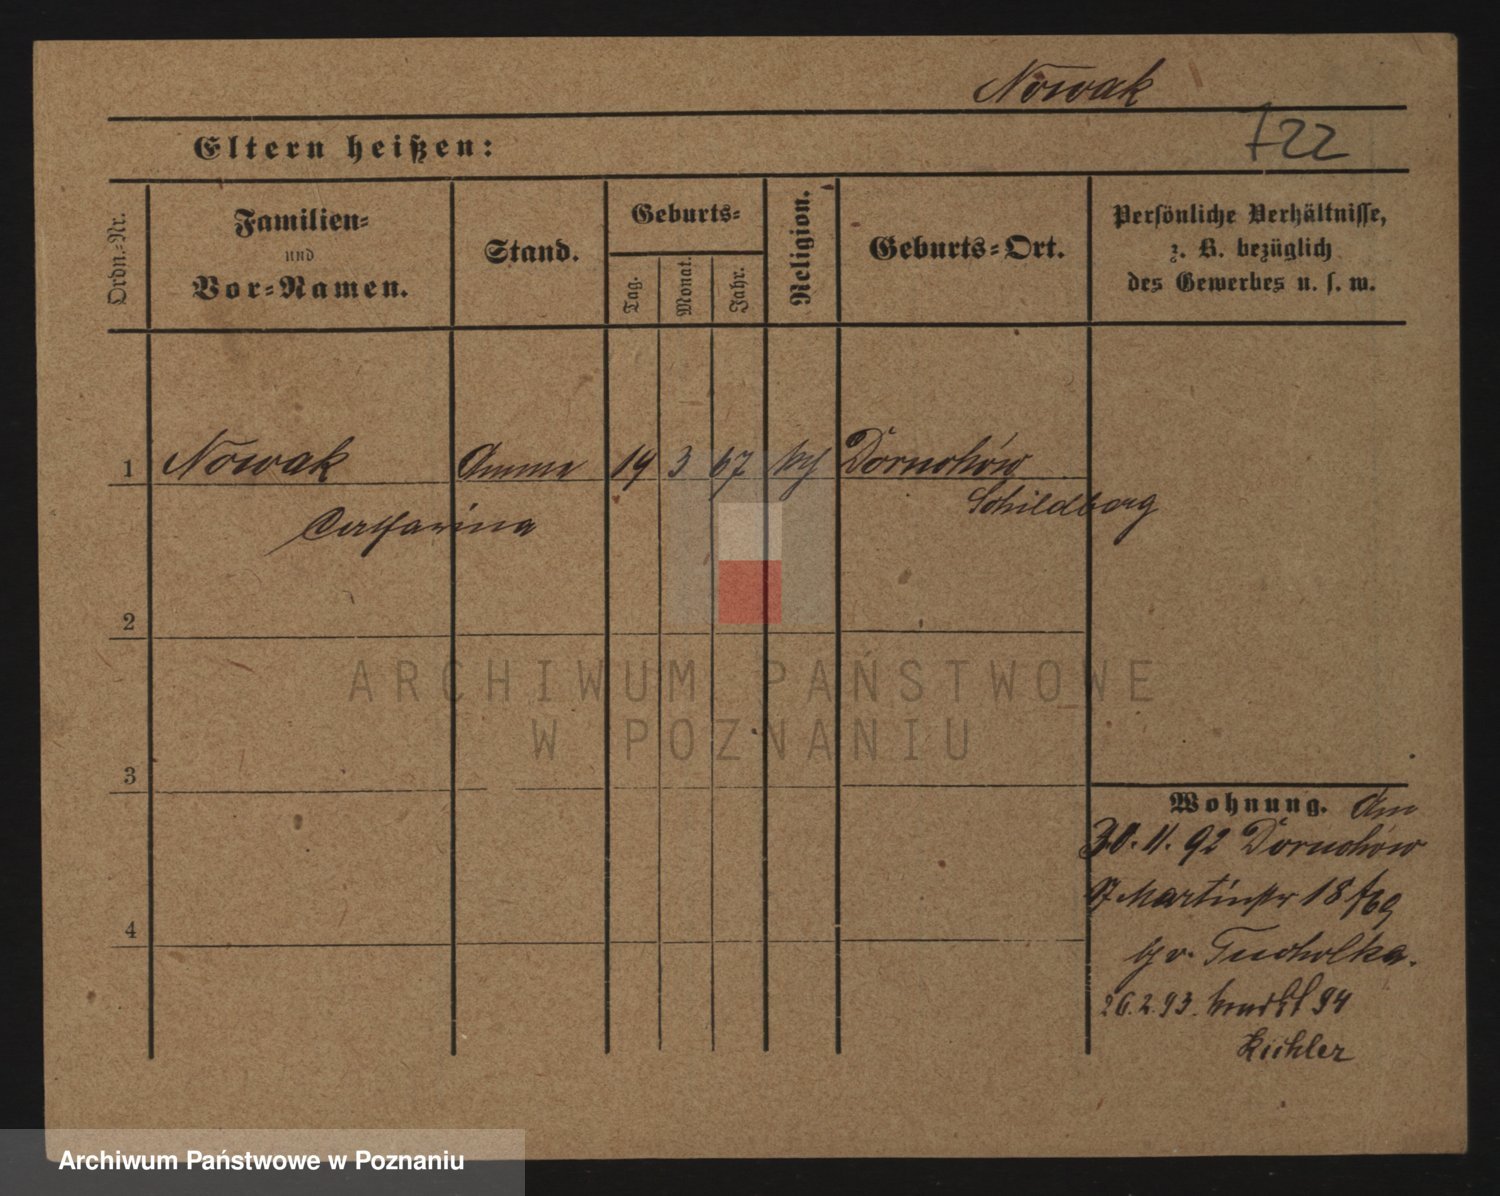 Nowak
722
Eltern heißen:
Ordn.-Nr.
Familien-
und
Vor-Namen.
Stand.
Geburts-
Tag.
Monat.
Jahr.
Religion.
Geburts-Ort.
Persönliche Verhältnisse,
z. B. bezüglich
des Gewerbes u. s. w.
1 Nowak Amme 19 3 67 Dornchów
Catharina Schildberg
2
3
4
Wohnung. Am
30.11.92 Dornchów
Martinstr 18
Tucholka.
26.2.93. 94
Küchler
ARCHIWUM PAŃSTWOWE
W POZNANIU
Archiwum Państwowe w Poznaniu